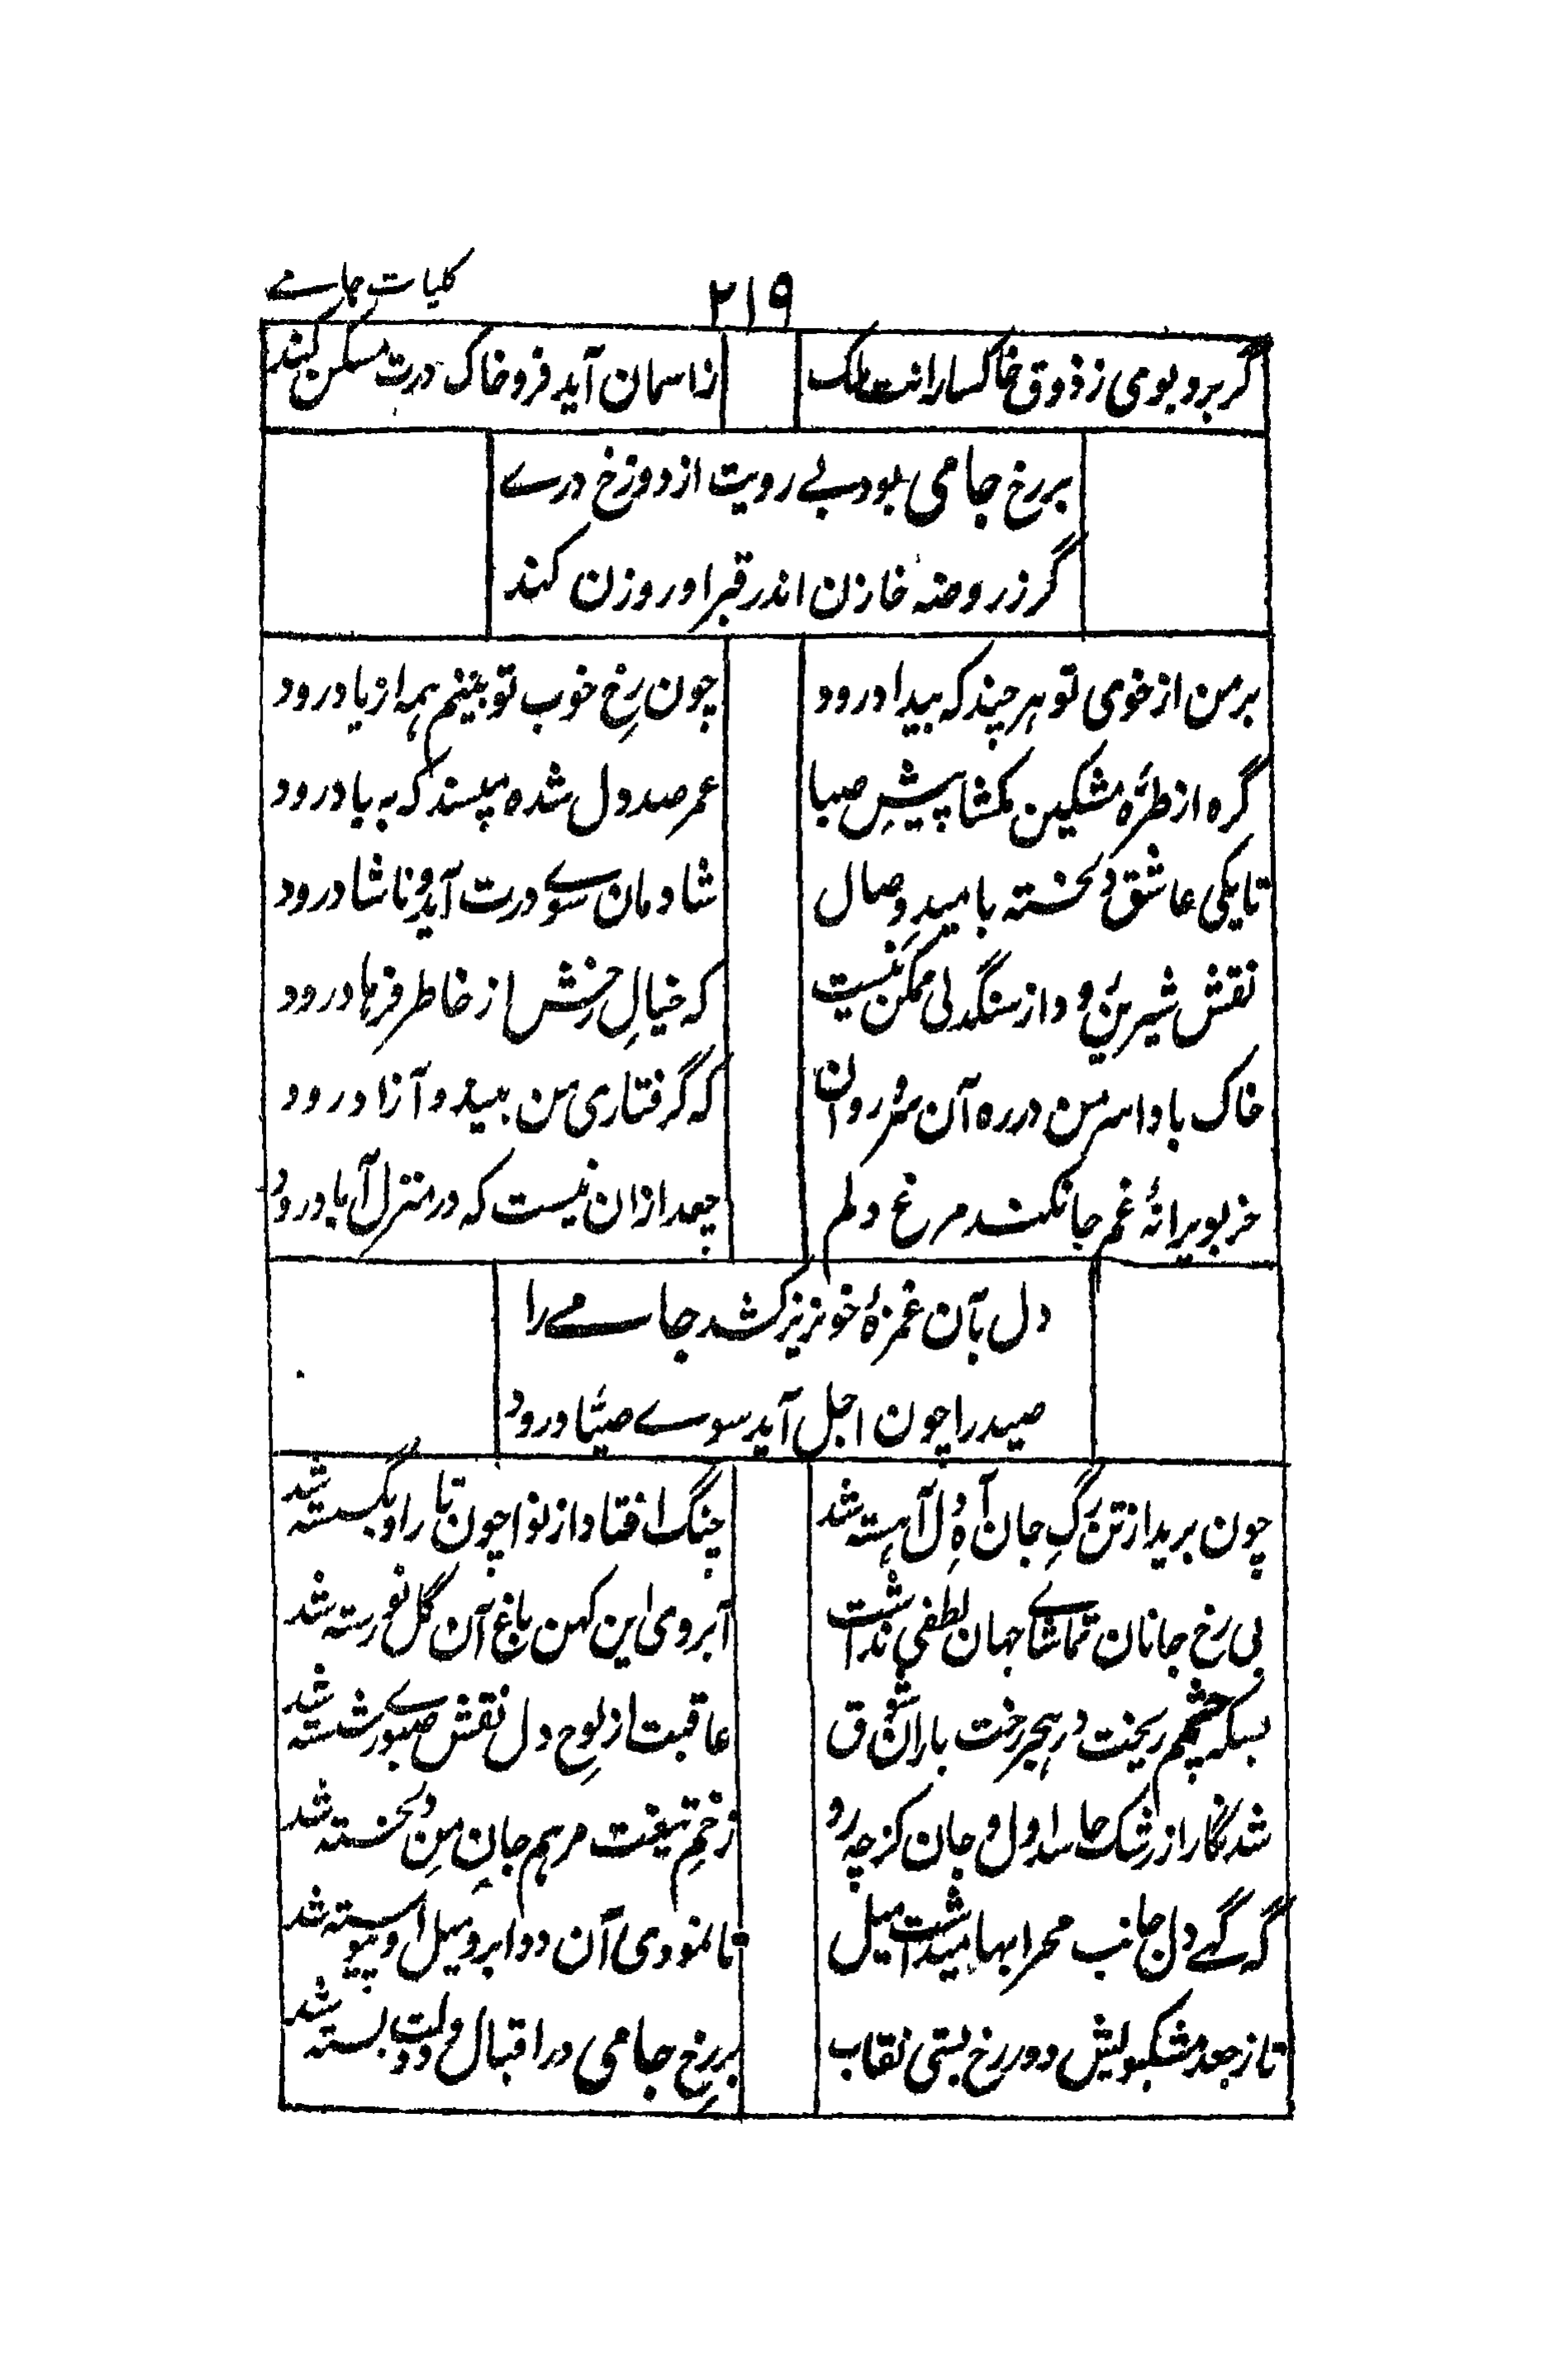 ۲۱۹
کلیات جامے
گر برد بوی ز ذوق خاکسارانت ملک
ز اسمان آید فرو خاک درت مسکن کند
بر رخ جامی بود بے رویت از دوزخ درے
گر ز روضۂ خازن اندر قبر او روزن کند
بر من از خوی تو هر چند که بیداد رود
چون رخ خوب تو بینم همه از یاد رود
گره از طرّۂ مشکین مکشا پیشِ صبا
عمر صد دل شده مپسند که بر باد رود
تا بکی عاشق دلخسته بامیدِ وصال
شادمان سوے درت آید و ناشاد رود
نقش شیرین رود از سنگدلی ممکن نیست
که خیالِ رخش از خاطر فرهاد رود
خاک بادا سر من در ره آن سرو روان
که گرفتاری من بیند و آزاد رود
جز بویرانۂ غم جا نکند مرغ دلم
جغد ازان نیست که در منزل آباد رود
دل بآن غمزۂ خونریز کشد جامے را
صید را چون اجل آید سوے صیّاد رود
چون برید از تن رگِ جان آهِ دل آهسته شد
چنگ افتاد از نوا چون تار او بگسسته شد
بی رخ جانان تماشاے جهان لطفی نداشت
آبروی این کهن باغ آن گل نورسته شد
بسکه چشمم ریخت در هجر رخت باران شوق
عاقبت از لوحِ دل نقش صبورے شسته شد
شد نگارا از رشک حاسد اول و جان کز چه رو
زخمِ تیغت مرهم جانِ منِ دلخسته شد
گه گهے دل جانب محرابها میداشت میل
تا نمودی آن دو ابرو میل او پیوسته شد
تا ز جعد مشکبویش دور رخ بستی نقاب
بر رخِ جامی در اقبال و دولت بسته شد